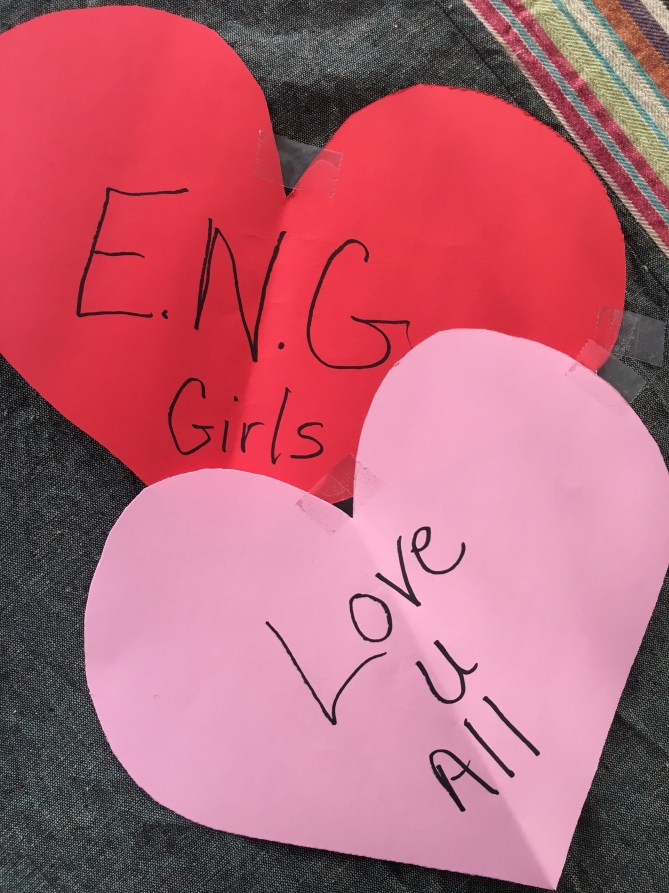 E.N.G
Girls
Love
U
All